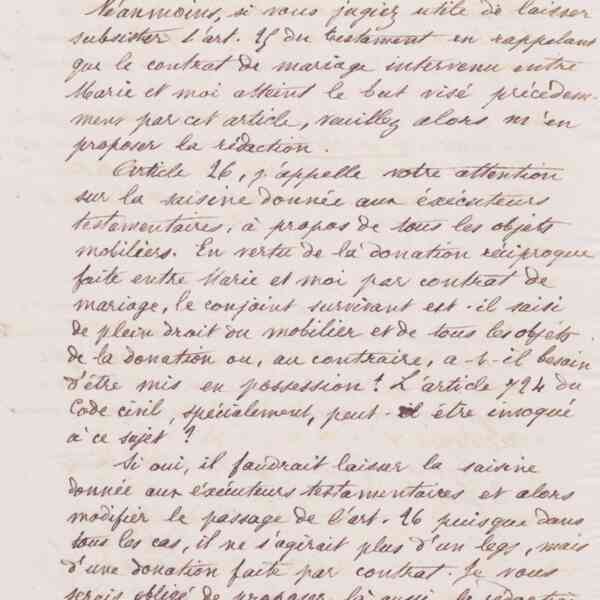 Néanmoins, si vous jugiez utile de laisser
subsister l'art. 25 du testament en rappelant
que le contrat de mariage intervenu entre
Marie et moi atteint le but visé précédem-
ment par cet article, veuillez alors m'en
proposer la rédaction.
Article 26, j'appelle votre attention
sur la saisine donnée aux exécuteurs
testamentaires, à propos de tous les objets
mobiliers. En vertu de la donation réciproque
faite entre Marie et moi par contrat de
mariage, le conjoint survivant est-il saisi
de plein droit du mobilier et de tous les objets
de la donation ou, au contraire, a-t-il besoin
d'être mis en possession? L'article 724 du
Code civil, spécialement, peut-il être invoqué
à ce sujet?
Si oui, il faudrait laisser la saisine
donnée aux exécuteurs testamentaires et alors
modifier le passage de l'art. 26 puisque dans
tous les cas, il ne s'agirait plus d'un legs, mais
d'une donation faite par contrat. Je vous
serais obligé de proposer là aussi la rédaction